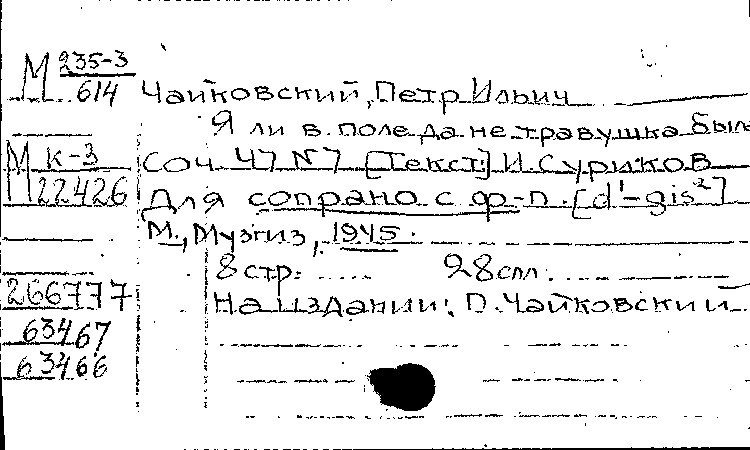 М 235-3
614
Чайковский, Петр Ильич
Я ли в поле да не травушка была
М К-3
22426
Соч 47 N7 [Текст:] И. Суриков
Для сопрано с ф-п. [d'-gis²]
М., Музгиз, 1945.
8 стр.
28 спл.
266777
На издании: П. Чайковский
63467
63466